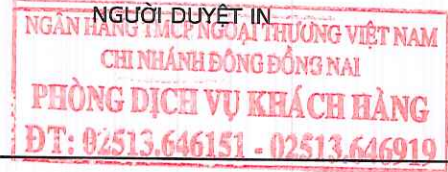 NGƯỜI DUYỆT IN
NGÂN HÀNG TMCP NGOẠI THƯƠNG VIỆT NAM
CHI NHÁNH ĐÔNG ĐỒNG NAI
PHÒNG DỊCH VỤ KHÁCH HÀNG
ĐT: 02513.646151 - 02513.646919